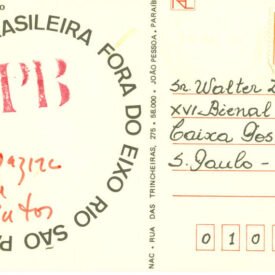 BRASILEIRA FORA DO EIXO RIO SÃO PA
PB
NAC - RUA DAS TRINCHEIRAS, 275 - 58.000 - JOÃO PESSOA, PARAÍB
Sr. Walter Z
XVI Bienal
Caixa Pos
S. Paulo -
0 1 0